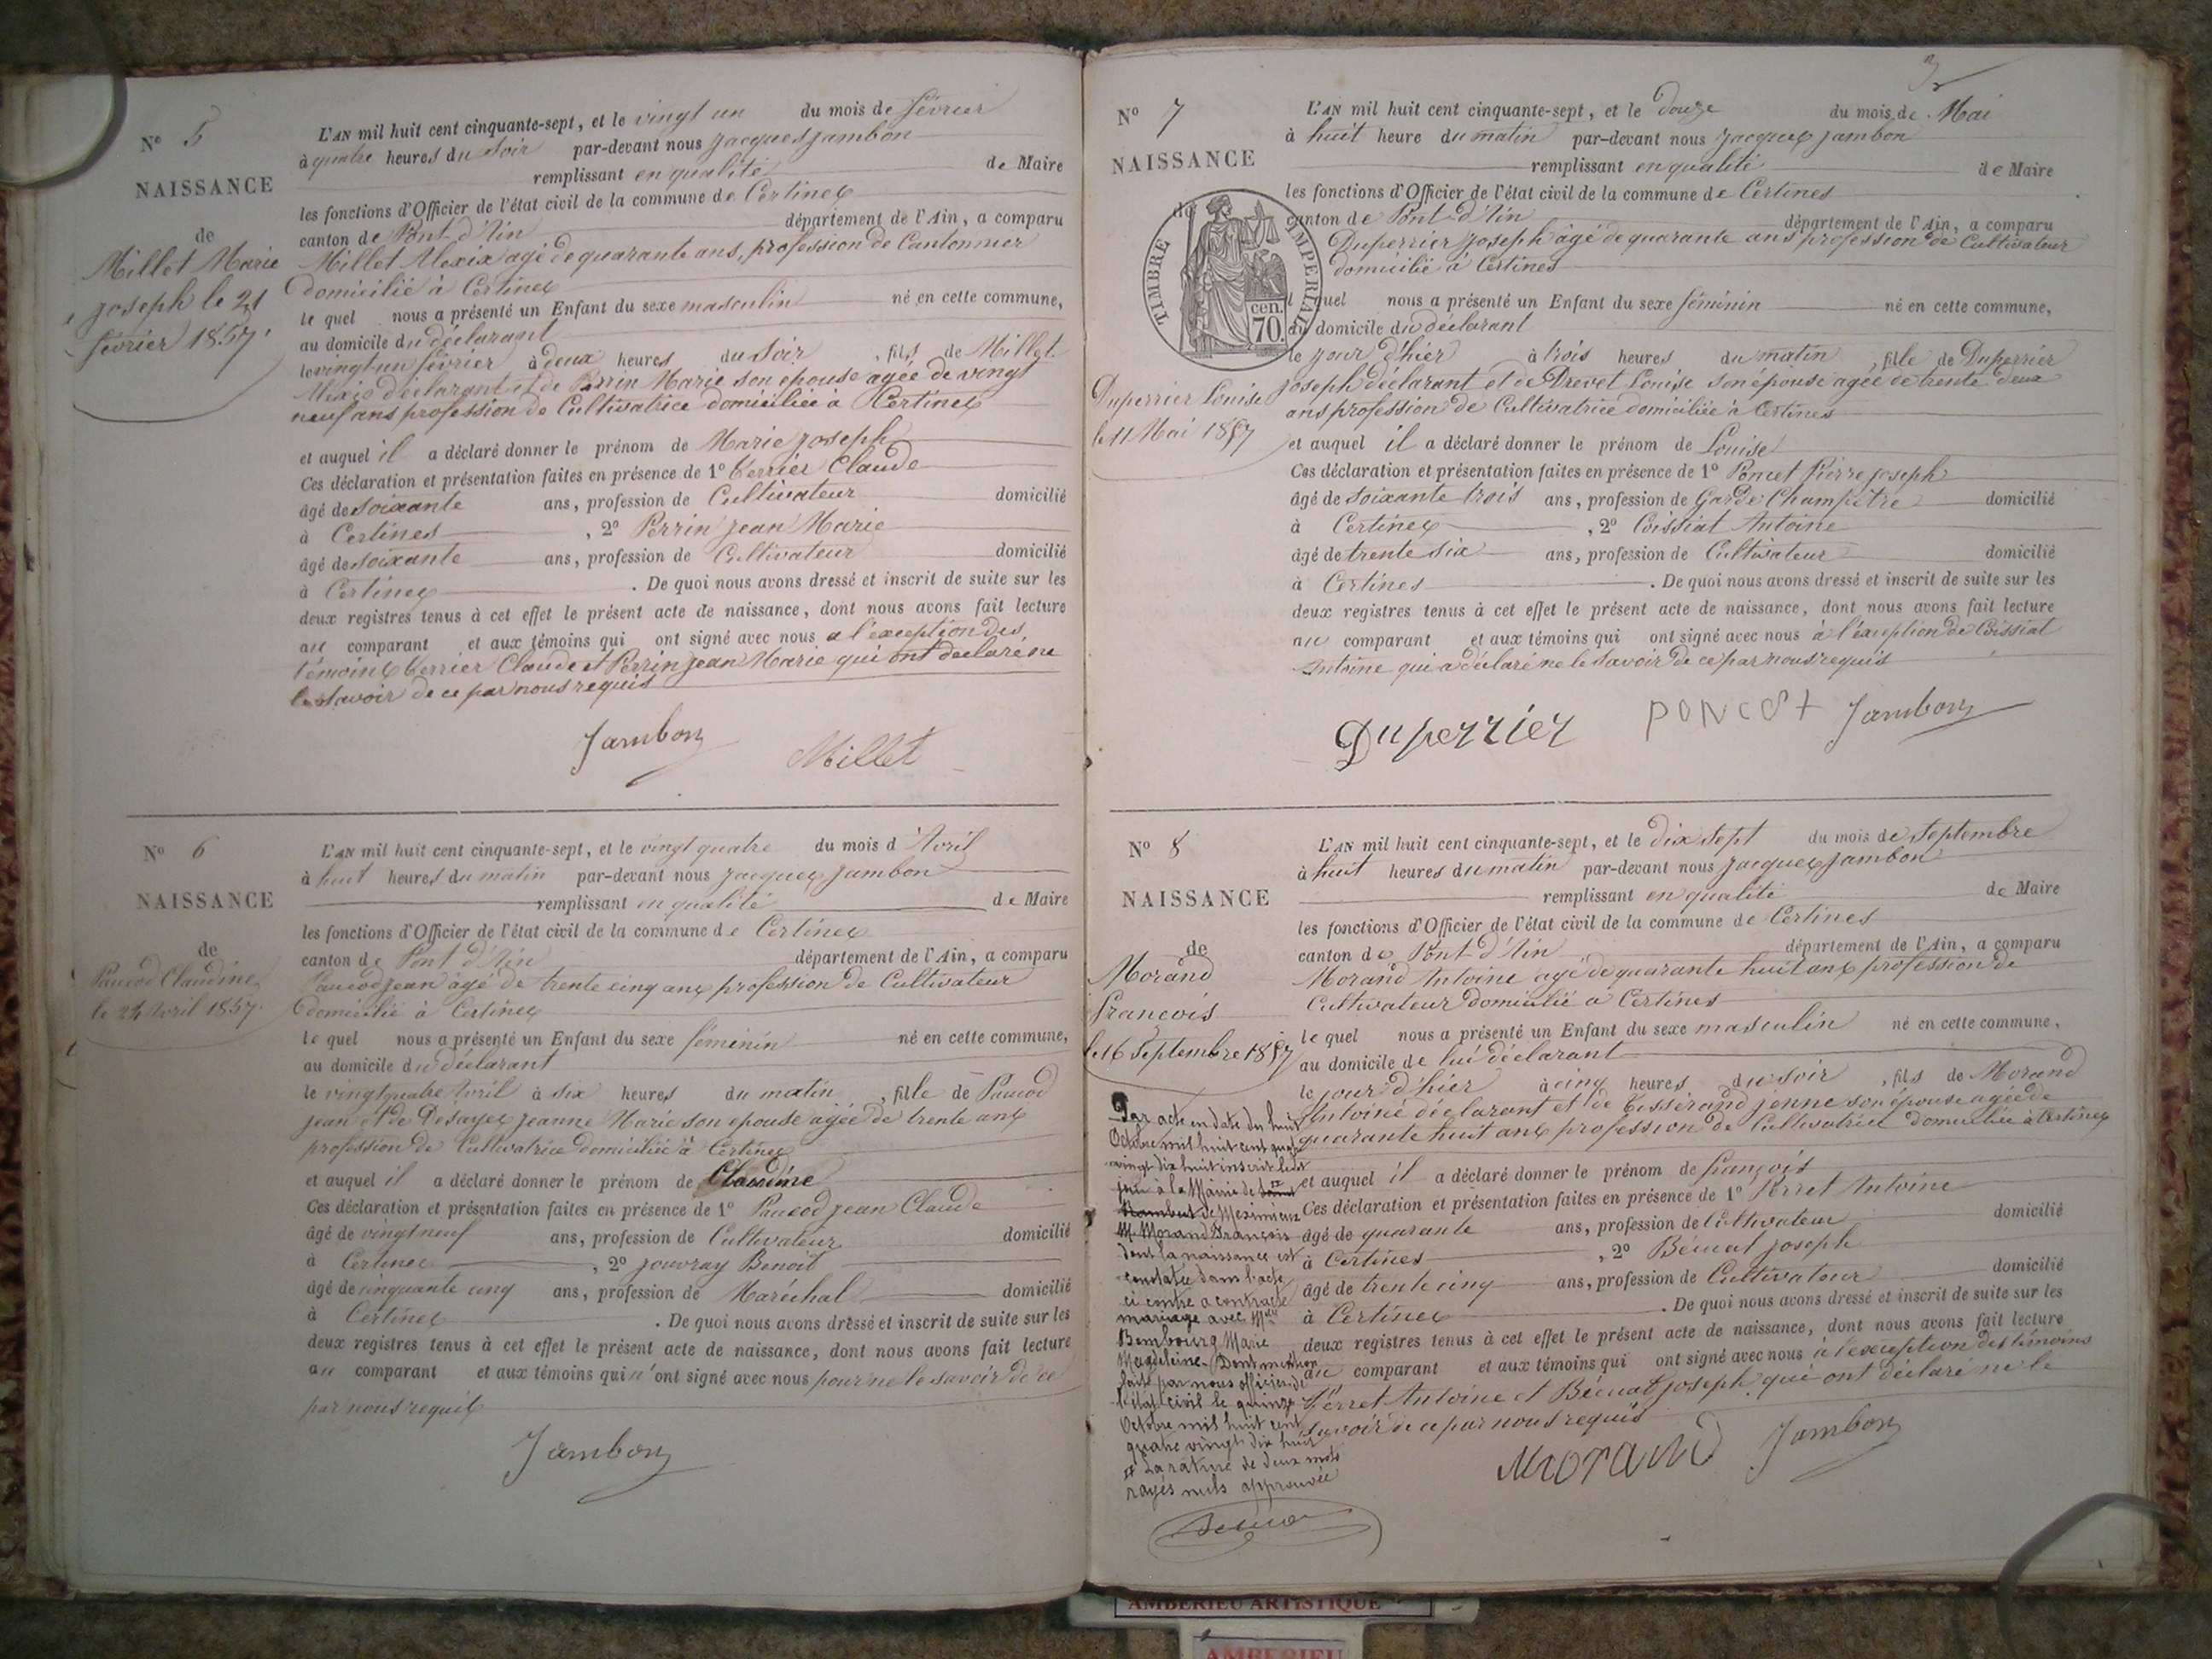 Nº 5
NAISSANCE
de
Millet Marie
joseph le 21
février 1857.
L'AN mil huit cent cinquante-sept, et le vingt un du mois de février
à quatre heures du soir par-devant nous jacques jambon
remplissant en qualité de Maire
les fonctions d'Officier de l'état civil de la commune de Certines
canton de Pont-d'Ain département de l'Ain, a comparu
Millet Alexix agé de quarante ans, profession de Cantonnier
domicilié à Certines
le quel nous a présenté un Enfant du sexe masculin né en cette commune,
au domicile du déclarant
le vingt-un février à deux heures du soir, fils de Millet
Alexis déclarant et de Perrin Marie son epouse agée de vingt
neuf ans profession de Cultivatrice domiciliée à Certines
et auquel il a déclaré donner le prénom de Marie joseph
Ces déclaration et présentation faites en présence de 1º Verrier Claude
âgé de soixante ans, profession de Cultivateur domicilié
à Certines, 2º Perrin jean Marie
âgé de soixante ans, profession de Cultivateur domicilié
à Certines. De quoi nous avons dressé et inscrit de suite sur les
deux registres tenus à cet effet le présent acte de naissance, dont nous avons fait lecture
au comparant et aux témoins qui ont signé avec nous a l'exception des
témoins Verrier Claude et Perrin jean Marie qui ont declaré ne
le savoir de ce par nous requis
Jambon
Millet
Nº 6
NAISSANCE
de
Paucod Claudine
le 24 Avril 1857.
L'AN mil huit cent cinquante-sept, et le vingt quatre du mois d'Avril
à huit heures du matin par-devant nous jacques jambon
remplissant en qualité de Maire
les fonctions d'Officier de l'état civil de la commune de Certines
canton de Pont d'Ain département de l'Ain, a comparu
Paucod jean âgé de trente cinq ans profession de Cultivateur
domicilié à Certines
le quel nous a présenté un Enfant du sexe féminin né en cette commune,
au domicile du déclarant
le vingt quatre Avril à six heures du matin, fille de Paucod
jean et de Desayes jeanne Marie son epouse agée de trente ans
profession de Cultivatrice domiciliée à Certines
et auquel il a déclaré donner le prénom de Claudine
Ces déclaration et présentation faites en présence de 1º Paucod jean Claude
âgé de vingt neuf ans, profession de Cultivateur domicilié
à Certines, 2º jouvray Benoit
âgé de cinquante cinq ans, profession de Maréchal domicilié
à Certines. De quoi nous avons dressé et inscrit de suite sur les
deux registres tenus à cet effet le présent acte de naissance, dont nous avons fait lecture
au comparant et aux témoins qui n'ont signé avec nous pour ne le savoir de ce
par nous requis
Jambon
3
Nº 7
NAISSANCE
de
TIMBRE IMPERIAL
70 cen.
Duperrier Louise
le 11 Mai 1857
L'AN mil huit cent cinquante-sept, et le douze du mois de Mai
à huit heure du matin par-devant nous jacques jambon
remplissant en qualité de Maire
les fonctions d'Officier de l'état civil de la commune de Certines
canton de Pont-d'Ain département de l'Ain, a comparu
Duperrier joseph âgé de quarante ans profession de Cultivateur
domicilié à Certines
l quel nous a présenté un Enfant du sexe féminin né en cette commune,
au domicile du déclarant
le jour d'hier à trois heures du matin, fille de Duperrier
joseph déclarant et de Drevet Louise son épouse agée de trente deux
ans profession de Cultivatrice domiciliée à Certines
et auquel il a déclaré donner le prénom de Louise
Ces déclaration et présentation faites en présence de 1º Poncet Pierre joseph
âgé de soixante trois ans, profession de Garde Champêtre domicilié
à Certines, 2º Coissiat Antoine
âgé de trente six ans, profession de Cultivateur domicilié
à Certines. De quoi nous avons dressé et inscrit de suite sur les
deux registres tenus à cet effet le présent acte de naissance, dont nous avons fait lecture
au comparant et aux témoins qui ont signé avec nous à l'exception de Coissiat
Antoine qui a déclaré ne le savoir de ce par nous requis
Duperrier PONCET Jambon
Nº 8
NAISSANCE
de
Morand
François
le 16 Septembre 1857
L'AN mil huit cent cinquante-sept, et le dix sept du mois de Septembre
à huit heures du matin par-devant nous jacques jambon
remplissant en qualité de Maire
les fonctions d'Officier de l'état civil de la commune de Certines
canton de Pont d'Ain département de l'Ain, a comparu
Morand Antoine agé de quarante huit ans profession de
Cultivateur domicilié à Certines
le quel nous a présenté un Enfant du sexe masculin né en cette commune,
au domicile de lui déclarant
le jour d'hier à cinq heures du soir, fils de Morand
Antoine déclarant et de Tissérand jenne son épouse agée de
quarante huit ans profession de Cultivatrice domiciliée à Certines
et auquel il a déclaré donner le prénom de françois
Ces déclaration et présentation faites en présence de 1º Perret Antoine
âgé de quarante ans, profession de Cultivateur domicilié
à Certines, 2º Béruat joseph
âgé de trente cinq ans, profession de Cultivateur domicilié
à Certines. De quoi nous avons dressé et inscrit de suite sur les
deux registres tenus à cet effet le présent acte de naissance, dont nous avons fait lecture
au comparant et aux témoins qui ont signé avec nous à l'exception des témoins
Perret Antoine et Béruat joseph qui ont déclaré ne le
savoir de ce par nous requis
Morand Jambon
Par acte en date du huit
Octobre mil huit cent quatre
vingt dix huit inscrit le dit
jour à la Mairie de Saint
Rambert de Meximieux
M. Morand François
dont la naissance est
constatée dans l'acte
ci contre a contracté
mariage avec Mlle
Bembourg Marie
Magdeleine. Dont mention
faite par nous officier de
l'état civil le quinze
Octobre mil huit cent
quatre vingt dix huit
La rature de deux mots
rayés nuls approuvée
AMBERIEU ARTISTIQUE
AMBERIEU